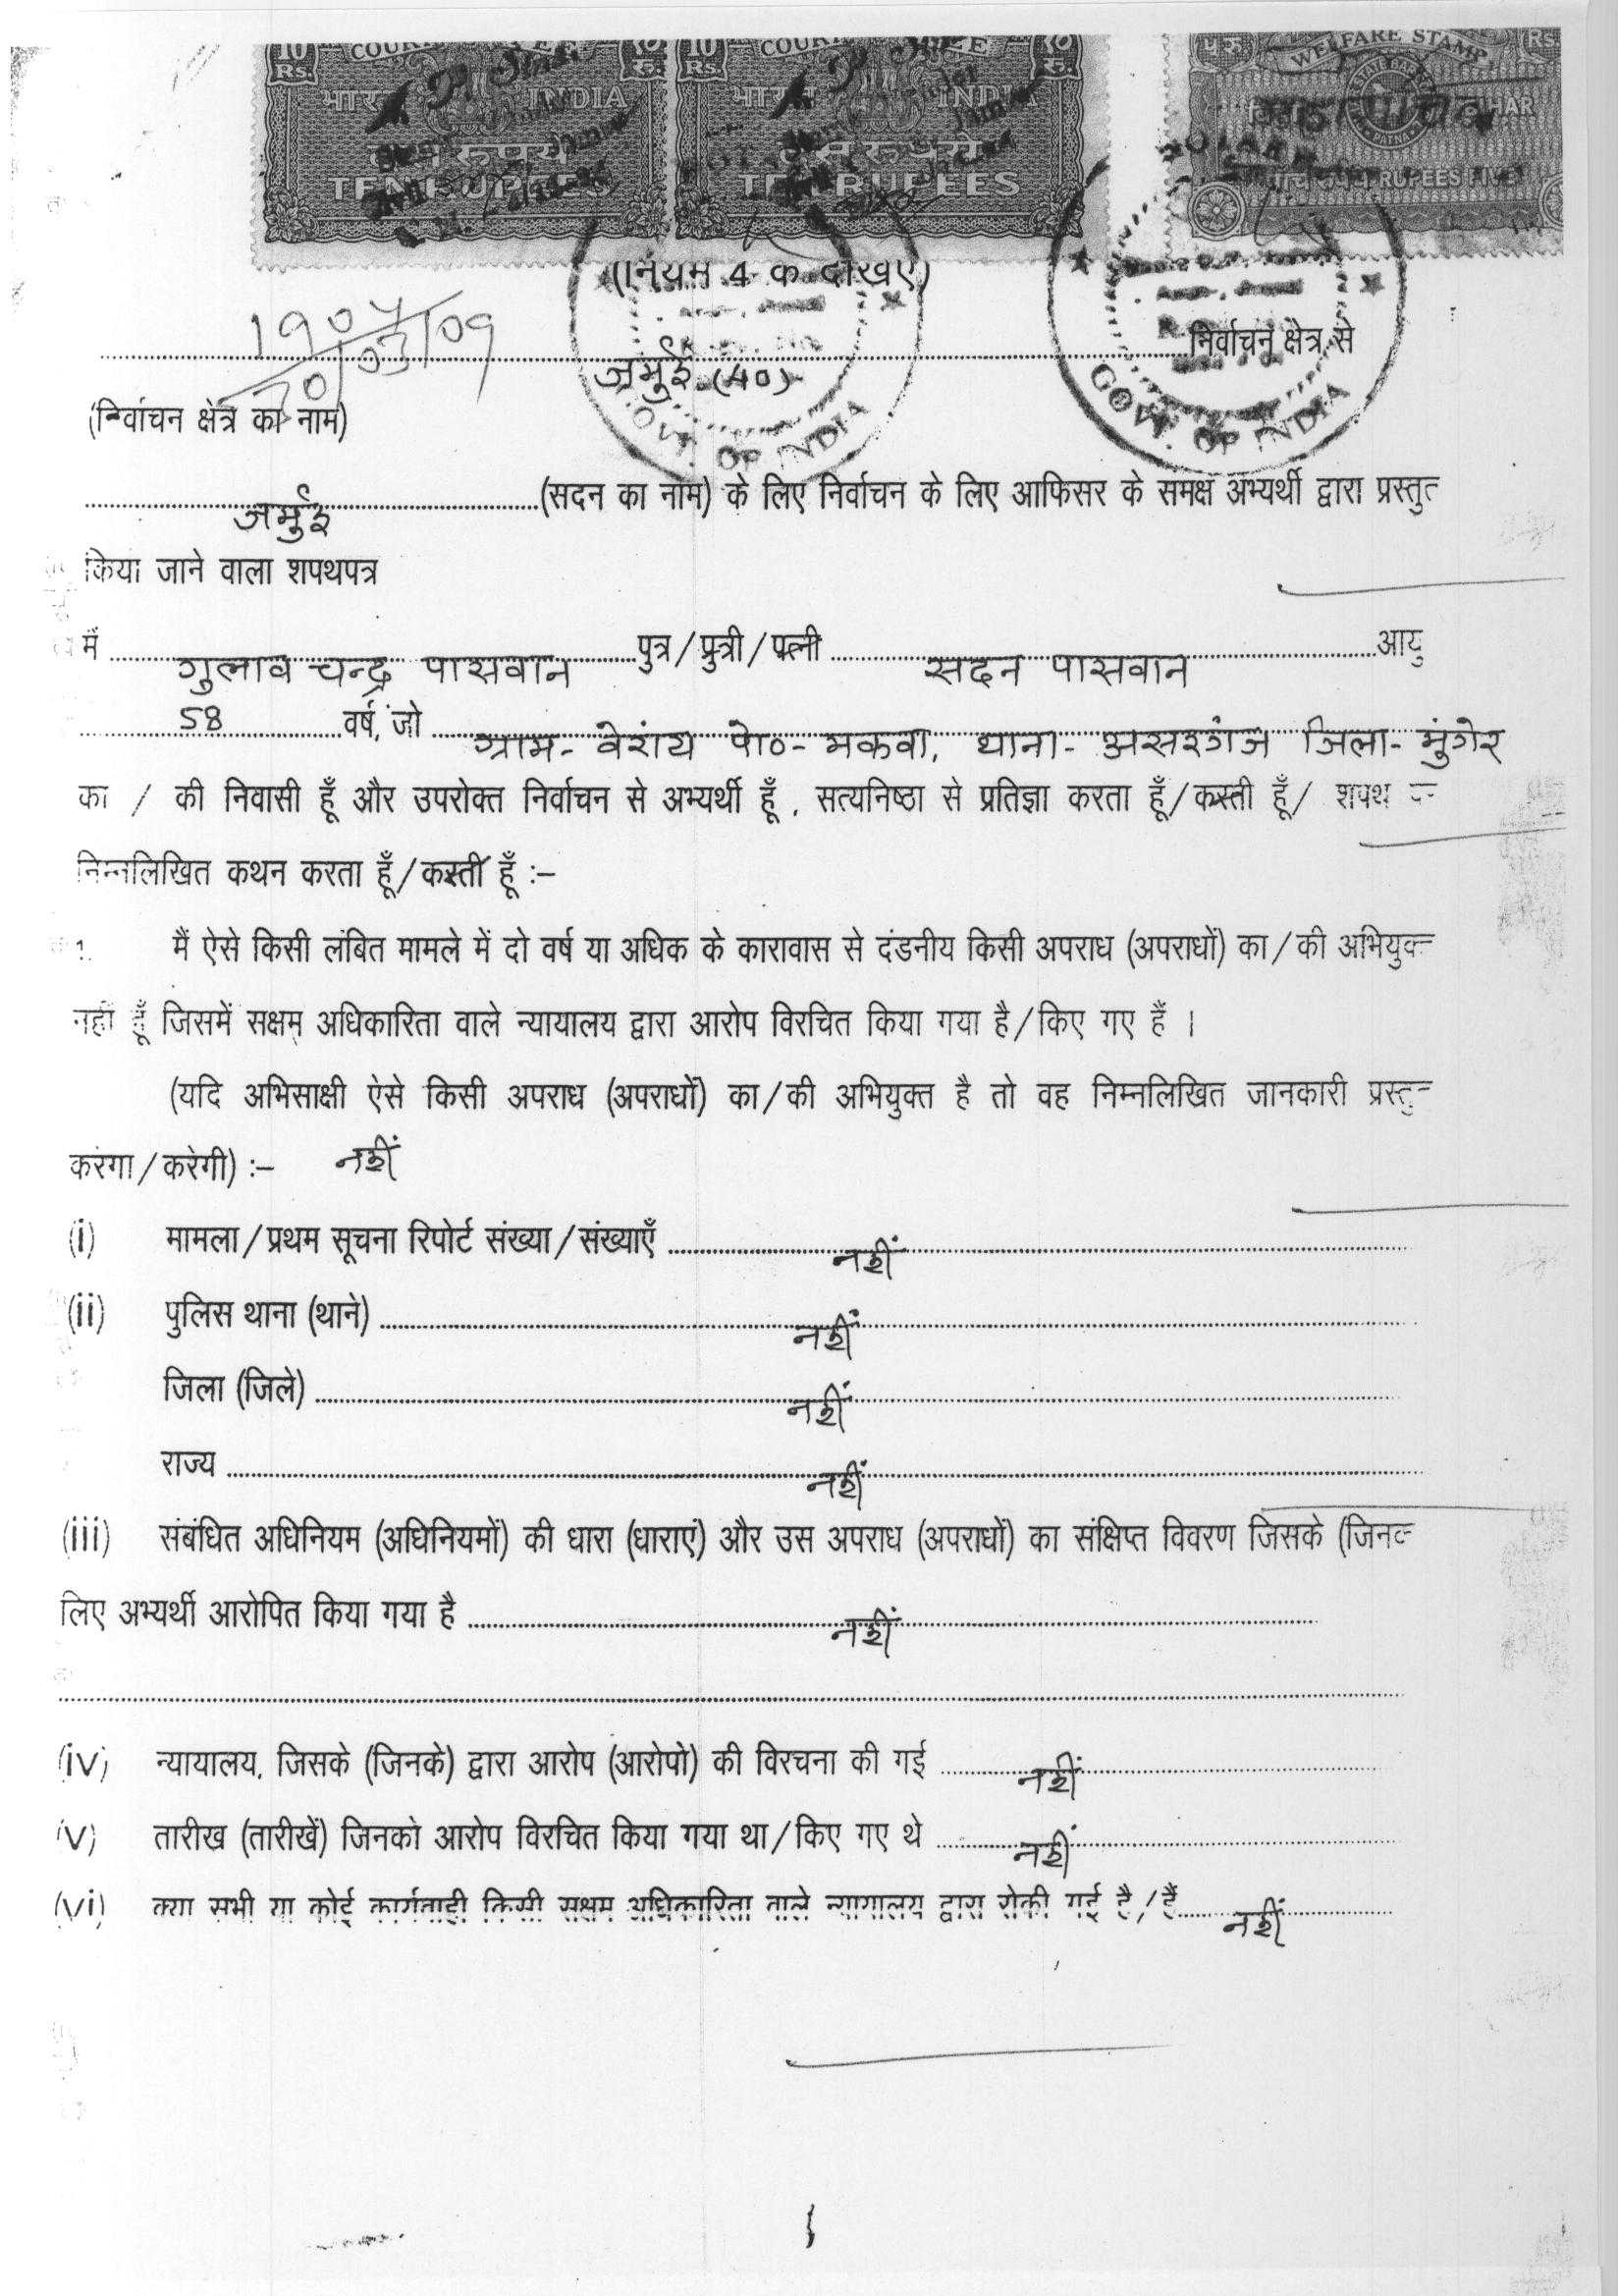 10 Rs. COURT FEE १० रु. 10 Rs. COURT FEE १० रु. ५ रु WELFARE STAMP Rs.
भारत INDIA भारत INDIA BIHAR
दस रुपये दस रुपये
TEN RUPEES TEN RUPEES पांच रुपये RUPEES FIVE
(नियम 4 क देखिए)
30/03/09
जमुई (40) निर्वाचन क्षेत्र से
GOVT. OF INDIA GOVT. OF INDIA
(निर्वाचन क्षेत्र का नाम)
जमुई (सदन का नाम) के लिए निर्वाचन के लिए आफिसर के समक्ष अभ्यर्थी द्वारा प्रस्तुत
किया जाने वाला शपथपत्र
मैं गुलाव चन्द्र पासवान पुत्र/पुत्री/पत्नी सदन पासवान आयु
58 वर्ष, जो ग्राम- वेरांय पो०- मकवा, थाना- असरगंज जिला- मुंगेर
का / की निवासी हूँ और उपरोक्त निर्वाचन से अभ्यर्थी हूँ, सत्यनिष्ठा से प्रतिज्ञा करता हूँ/करती हूँ/ शपथ
निम्नलिखित कथन करता हूँ/करती हूँ :–
1. मैं ऐसे किसी लंबित मामले में दो वर्ष या अधिक के कारावास से दंडनीय किसी अपराध (अपराधों) का/की अभियुक्त
नहीं हूँ जिसमें सक्षम अधिकारिता वाले न्यायालय द्वारा आरोप विरचित किया गया है/किए गए हैं ।
(यदि अभिसाक्षी ऐसे किसी अपराध (अपराधों) का/की अभियुक्त है तो वह निम्नलिखित जानकारी प्रस्तुत
करेगा/करेगी) :– नहीं
(i) मामला/प्रथम सूचना रिपोर्ट संख्या/संख्याएँ नहीं
(ii) पुलिस थाना (थाने) नहीं
जिला (जिले) नहीं
राज्य नहीं
(iii) संबंधित अधिनियम (अधिनियमों) की धारा (धाराएं) और उस अपराध (अपराधों) का संक्षिप्त विवरण जिसके (जिनके
लिए अभ्यर्थी आरोपित किया गया है नहीं
(iv) न्यायालय, जिसके (जिनके) द्वारा आरोप (आरोपो) की विरचना की गई नहीं
(v) तारीख (तारीखें) जिनको आरोप विरचित किया गया था/किए गए थे नहीं
(vi) क्या सभी या कोई कार्यवाही किसी सक्षम अधिकारिता वाले न्यायालय द्वारा रोकी गई है/हैं नहीं